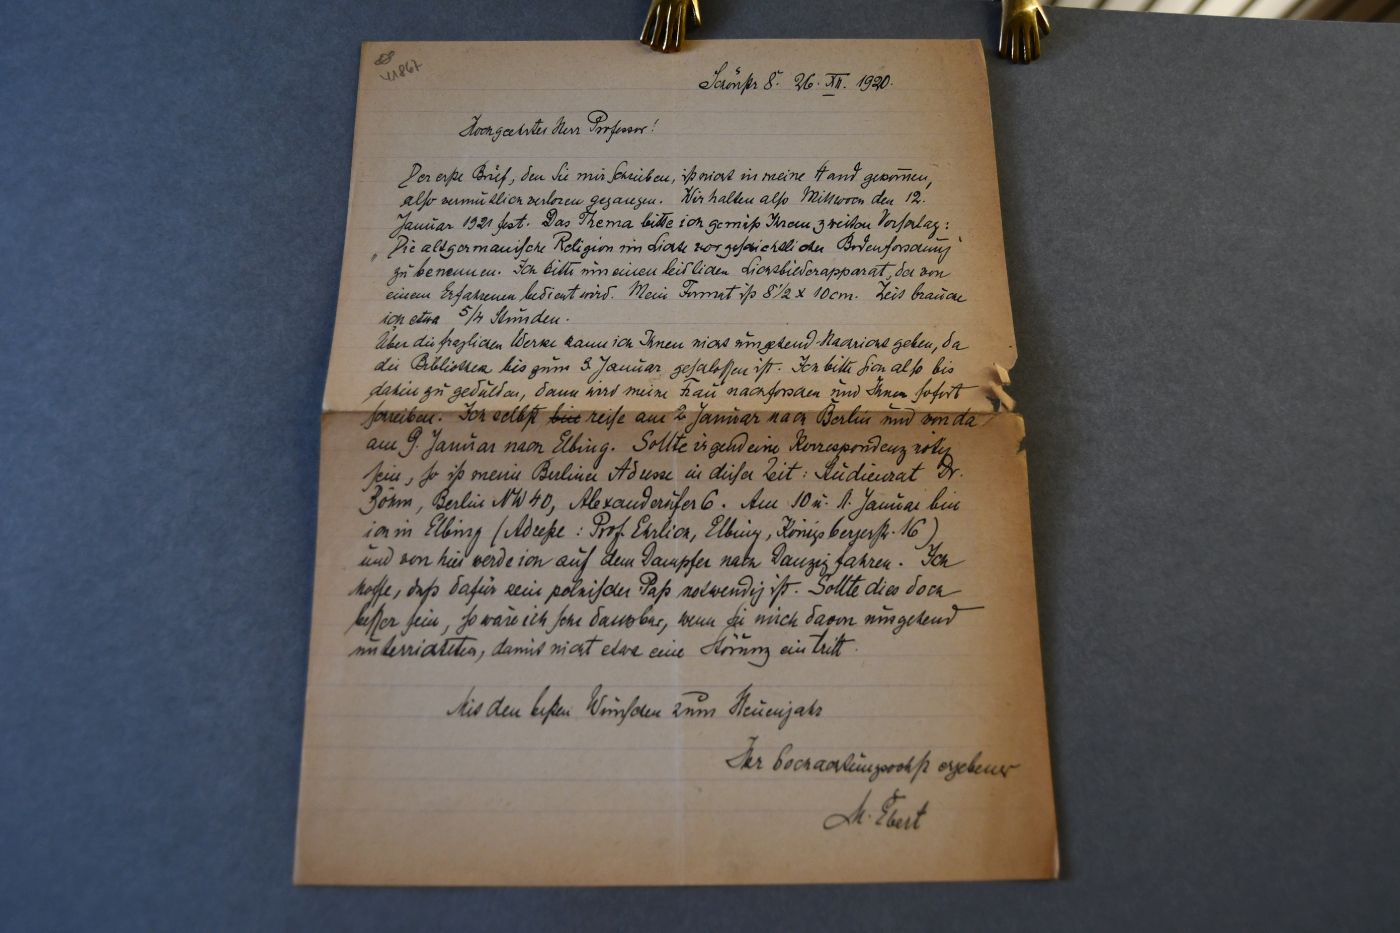 V1867
Schönstr 8. 26. XII. 1920.
Hochgeehrter Herr Professor!
Der erste Brief, den Sie mir schrieben, ist nicht in meine Hand gekommen,
also vermutlich verloren gegangen. Wir halten also Mittwoch den 12.
Januar 1921 fest. Das Thema bitte ich gemäß Ihrem zweiten Vorschlag:
„Die altgermanische Religion im Lichte vorgeschichtlicher Bodenforschung“
zu benennen. Ich bitte um einen leidlichen Lichtbilderapparat, der von
einem Erfahrenen bedient wird. Mein Format ist 8 1/2 x 10 cm. Zeit brauche
ich etwa 5/4 Stunden.
Über die fraglichen Werke kann ich Ihnen nicht umgehend Nachricht geben, da
die Bibliothek bis zum 3. Januar geschlossen ist. Ich bitte sich also bis
dahin zu gedulden, dann wird meine Frau nachforschen und Ihnen sofort
schreiben. Ich selbst bin reise am 2. Januar nach Berlin und von da
am 9. Januar nach Elbing. Sollte irgend eine Korrespondenz nötig
sein, so ist meine Berliner Adresse in dieser Zeit: Studienrat Dr.
Böhm, Berlin NW 40, Alexanderufer 6. Am 10 u. 11. Januar bin
ich in Elbing (Adresse: Prof. Ehrlich, Elbing, Königsbergerstr. 16)
und von hier werde ich auf dem Dampfer nach Danzig fahren. Ich
hoffe, daß dafür kein polnischer Paß notwendig ist. Sollte dies doch
besser sein, so wäre ich sehr dankbar, wenn Sie mich davon umgehend
unterrichteten, damit nicht etwa eine Störung eintritt.
Mit den besten Wünschen zum Neuenjahr
Ihr hochachtungsvollst ergebener
M. Ebert